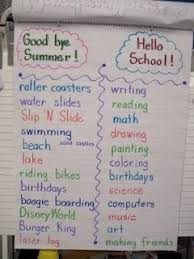 Good bye
Summer!
Hello
School!
raller coasters
water slides
Slip 'N Slide
swimming
beach sand castles
lake
riding bikes
birthdays
boogie boarding
Disney World
Burger King
laser tag
writing
reading
math
drawing
painting
coloring
birthdays
science
computers
music
art
making friends